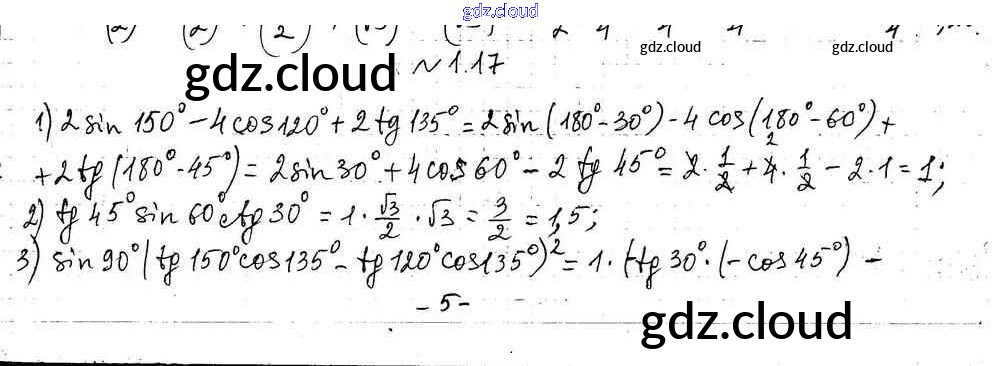 gdz.cloud
gdz.cloud gdz.cloud
gdz.cloud
№ 1.17
1) 2 sin 150° - 4 cos 120° + 2 tg 135° = 2 sin (180° - 30°) - 4 cos (180° - 60°) +
+ 2 tg (180° - 45°) = 2 sin 30° + 4 cos 60° - 2 tg 45° = 2 · 1/2 + 4 · 1/2 - 2 · 1 = 1;
2) tg 45° sin 60° ctg 30° = 1 · √3/2 · √3 = 3/2 = 1,5;
3) sin 90° (tg 150° cos 135° - tg 120° cos 135°)² = 1 · (-tg 30° · (-cos 45°) -
- 5 -
gdz.cloud